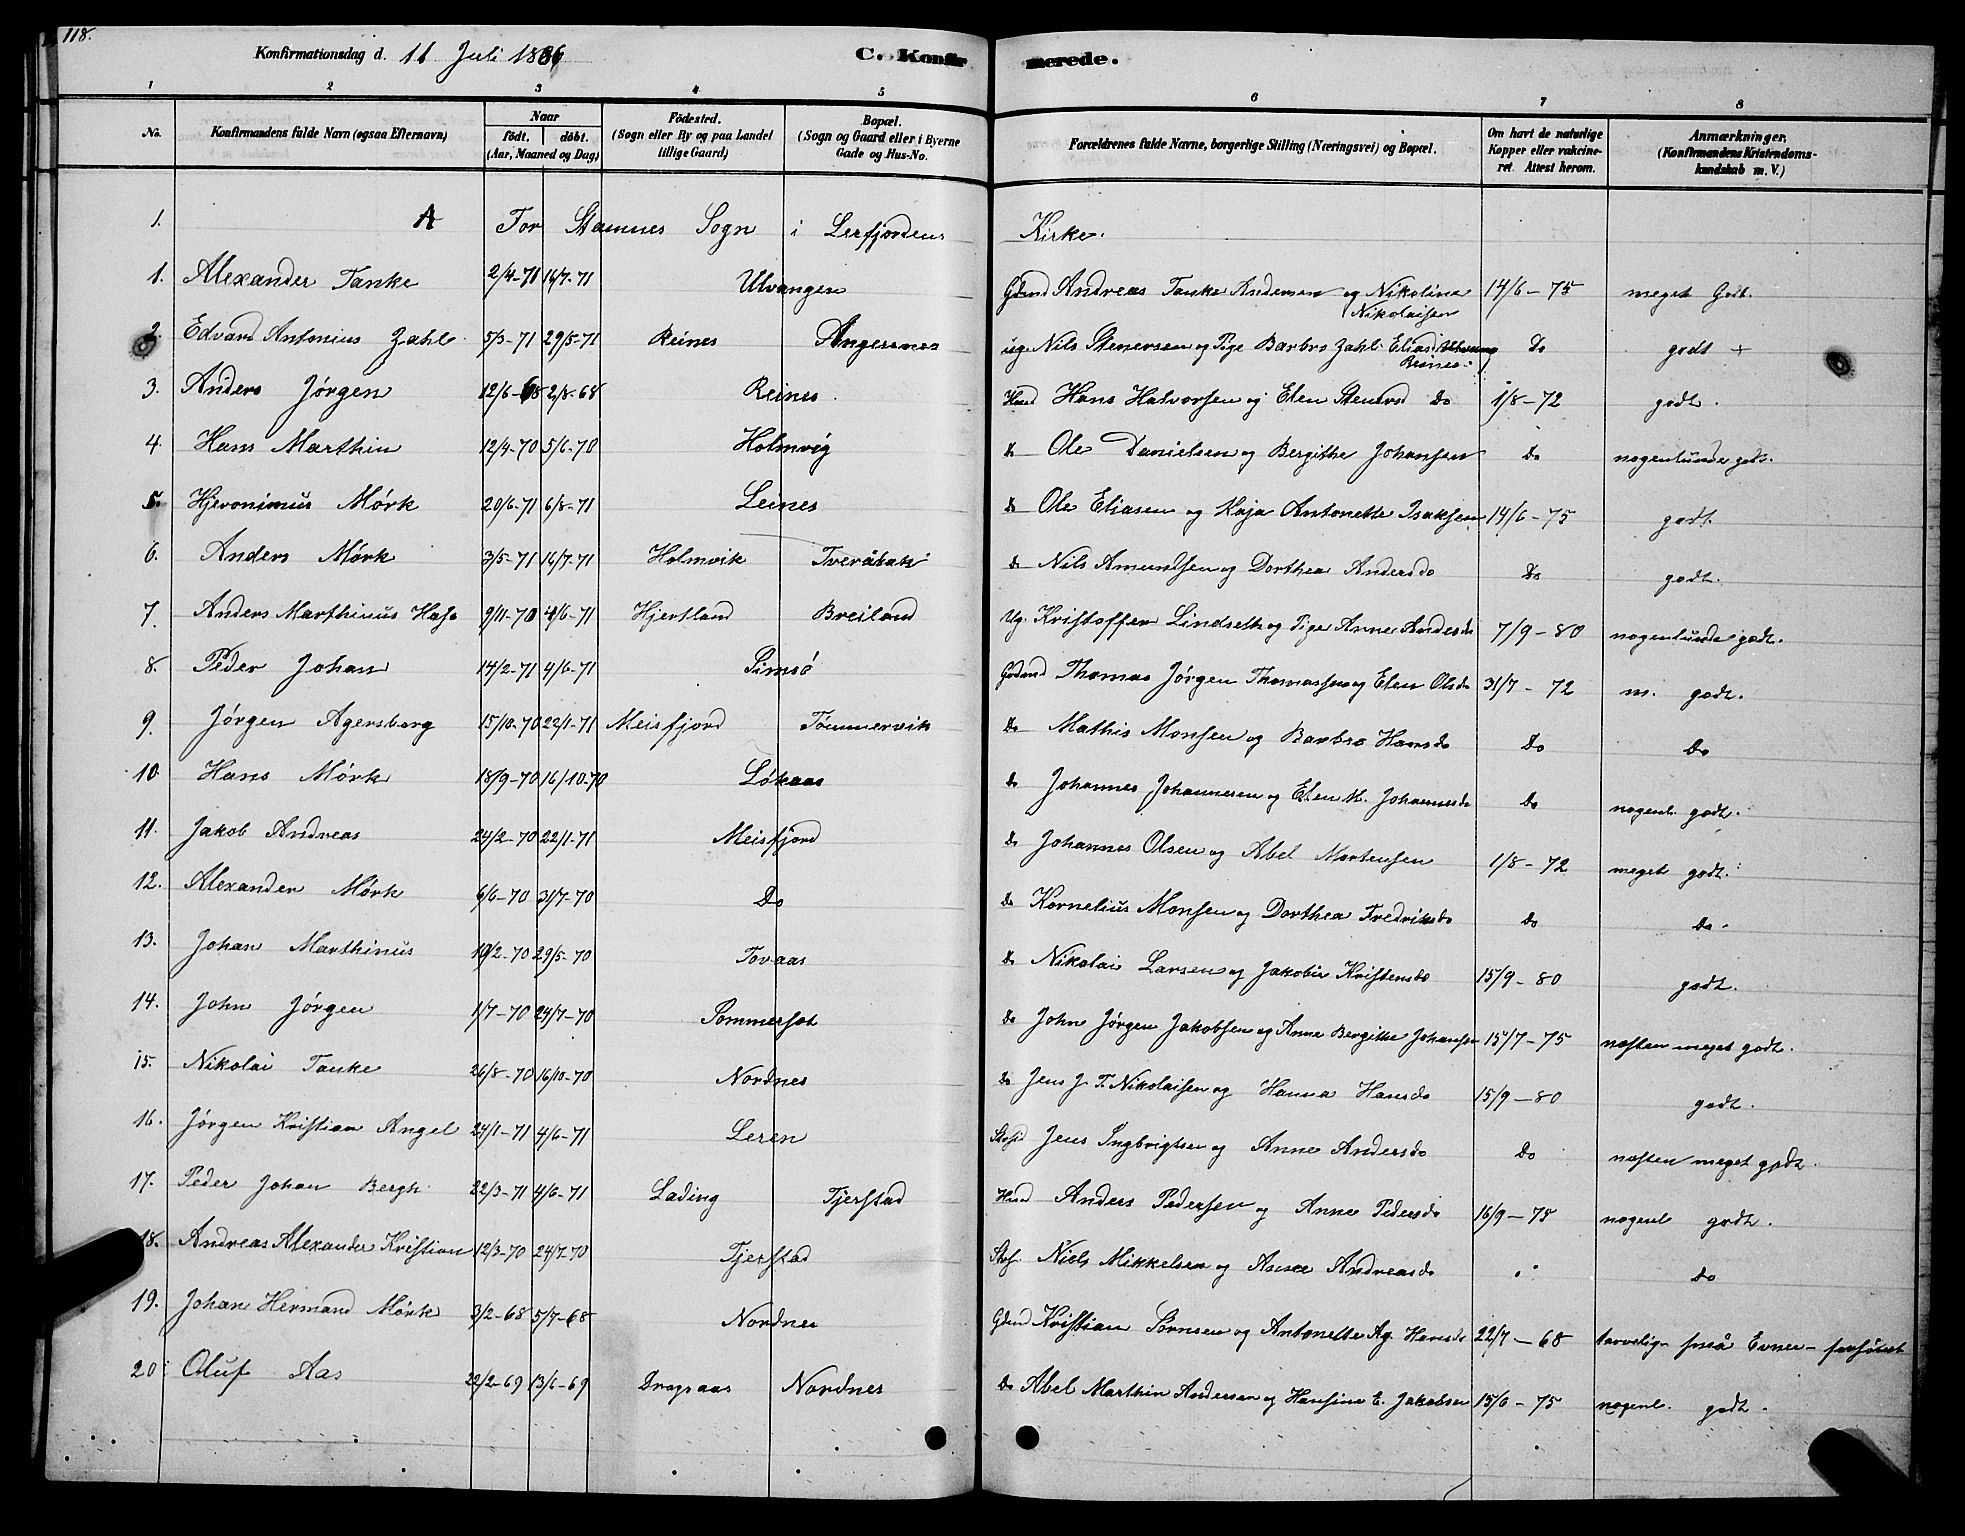 118.
Konfirmationsdag d. 11 Juli 1886
C. Konfirmerede.
1 2 3 4 5 6 7 8
No. Konfirmandens fulde Navn (ogsaa Efternavn) Naar födt. döbt. (Aar, Maaned og Dag) Födested. (Sogn eller By og paa Landet tillige Gaard) Bopæl. (Sogn og Gaard eller i Byerne Gade og Hus-No. Forældrenes fulde Navne, borgerlige Stilling (Næringsvei) og Bopæl. Om havt de naturlige Kopper eller vakcineret. Attest herom. Anmærkninger, (Konfirmandens Kristendomskundskab m. V.)
1. A For Stamnes Sogn i Lerfjordens Kirke.
1. Alexander Tanke 2/4-71 16/7-71 Ulvangen Gdmd Andreas Tanke Andersen og Nikoline Nikolaisen 14/6-75 meget Godt.
2. Edvard Antonius Zahl 5/3-71 29/5-71 Reines Angersnes ug. Nils Stenersen og Pige Barbro Zahl Eliasd Reines Do godt +
3. Anders Jörgen 12/6-68 2/8-68 Reines Hmd Hans Halvorsen og Elen Stenersd Do 1/8-72 godt.
4. Hans Marthin 12/4-70 5/6-70 Holmvig Do Ole Danielsen og Bergithe Johansen Do nogenlunde godt.
5. Hjeronimus Mörk 20/6-71 6/8-71 Leines Do Ole Eliasen og Kaja Antonette Isaksen 14/6-75 godt.
6. Anders Mörk 3/5-71 16/7-71 Holmvik Tveråbak Do Nils Amundsen og Dorthea Andersdo Do godt.
7. Anders Marthinus 9/11-70 4/6-71 Hjertland Breiland Ug. Kristoffer Lindseth og Pige Anne Andersdo 7/9-80 nogenlunde godt.
8. Peder Johan 14/2-71 4/6-71 Simsö Gdmd Thomas Jörgen Thomassen og Elen Olsdo 31/7-72 m. godt.
9. Jörgen Agersborg 15/10-70 22/1-71 Meisfjord Tömmervik Do Mathis Monsen og Barbro Hansdo Do Do
10. Hans Mörk 18/9-70 16/10-70 Lökaas Do Johannes Johannesen og Elen M. Johannesdo Do nogenl. godt.
11. Jakob Andreas 24/2-70 22/1-71 Meisfjord Do Johannes Olsen og Abel Mortensen 1/8-72 meget godt.
12. Alexander Mörk 6/6-70 31/7-70 Do Do Kornelius Monsen og Dorthea Fredriksdo Do Do
13. Johan Marthinus 19/2-70 29/5-70 Tovaas Do Nikolai Larsen og Jakobie Kristensdo 15/9-80 godt.
14. John Jörgen 1/7-70 24/7-70 Sommerset Do John Jörgen Jakobsen og Anne Bergitte Johansen 15/7-75 næsten meget godt.
15. Nikolai Tanke 26/8-70 16/10-70 Nordnes Do Jens J. T. Nikolaisen og Hanna Hansdo 15/9-80 godt.
16. Jörgen Kristian Angel 24/1-71 4/6-71 Leren Jens Ingbrigtsen og Anne Andersdo Do næsten meget godt.
17. Peder Johan Bergh 22/3-71 4/6-71 Lading Tjerstad Hmd Anders Pedersen og Anne Pedersdo 16/9-75 nogenl godt.
18. Andreas Alexander Kristian 12/3-70 24/7-70 Tjerstad Niels Mikkelsen og Andreasdo Do
19. Johan Hermand Mörk 3/2-68 5/7-68 Nordnes Gdmd Kristian Sörnsen og Antonette Ag. Hansdo 22/7-68 tarvelig- små Evner- forsömt
20. Oluf Aas 22/2-69 13/6-69 Dragsaas Nordnes Do Abel Marthin Andersen og Hansine E. Jakobsen 15/6-75 nogenl. godt.